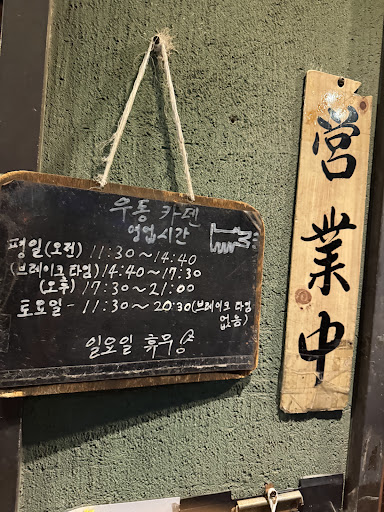 우동 카덴
영업시간
평일(오전) 11:30~14:40
(브레이크 타임) 14:40~17:30
(오후) 17:30~21:00
토요일 - 11:30~20:30(브레이크 타임
없음)
일요일 휴무
営業中